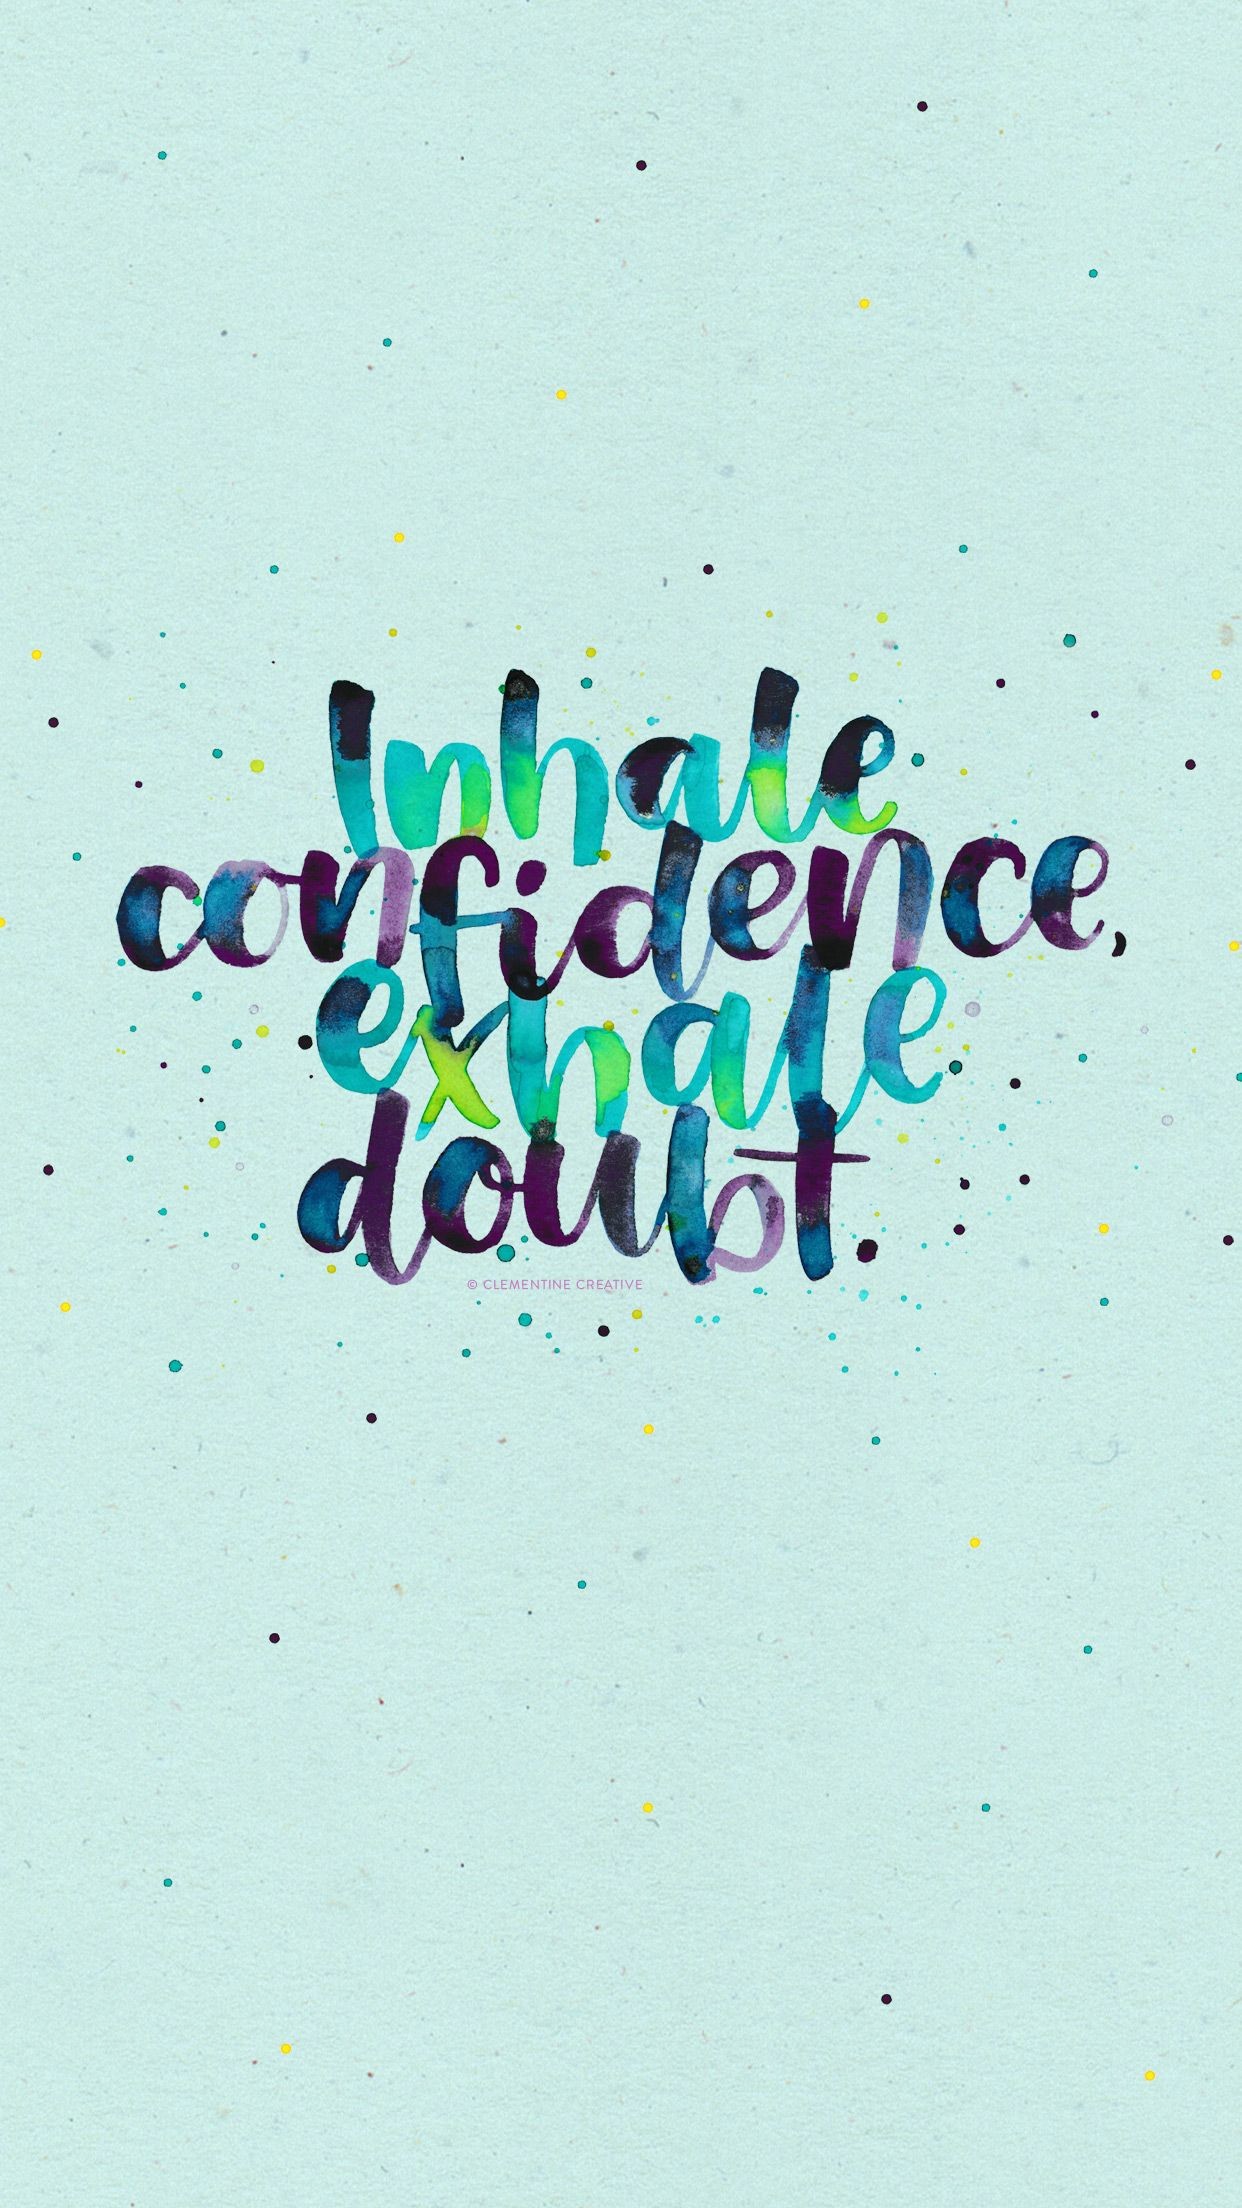 Inhale
confidence,
exhale
doubt.
© CLEMENTINE CREATIVE